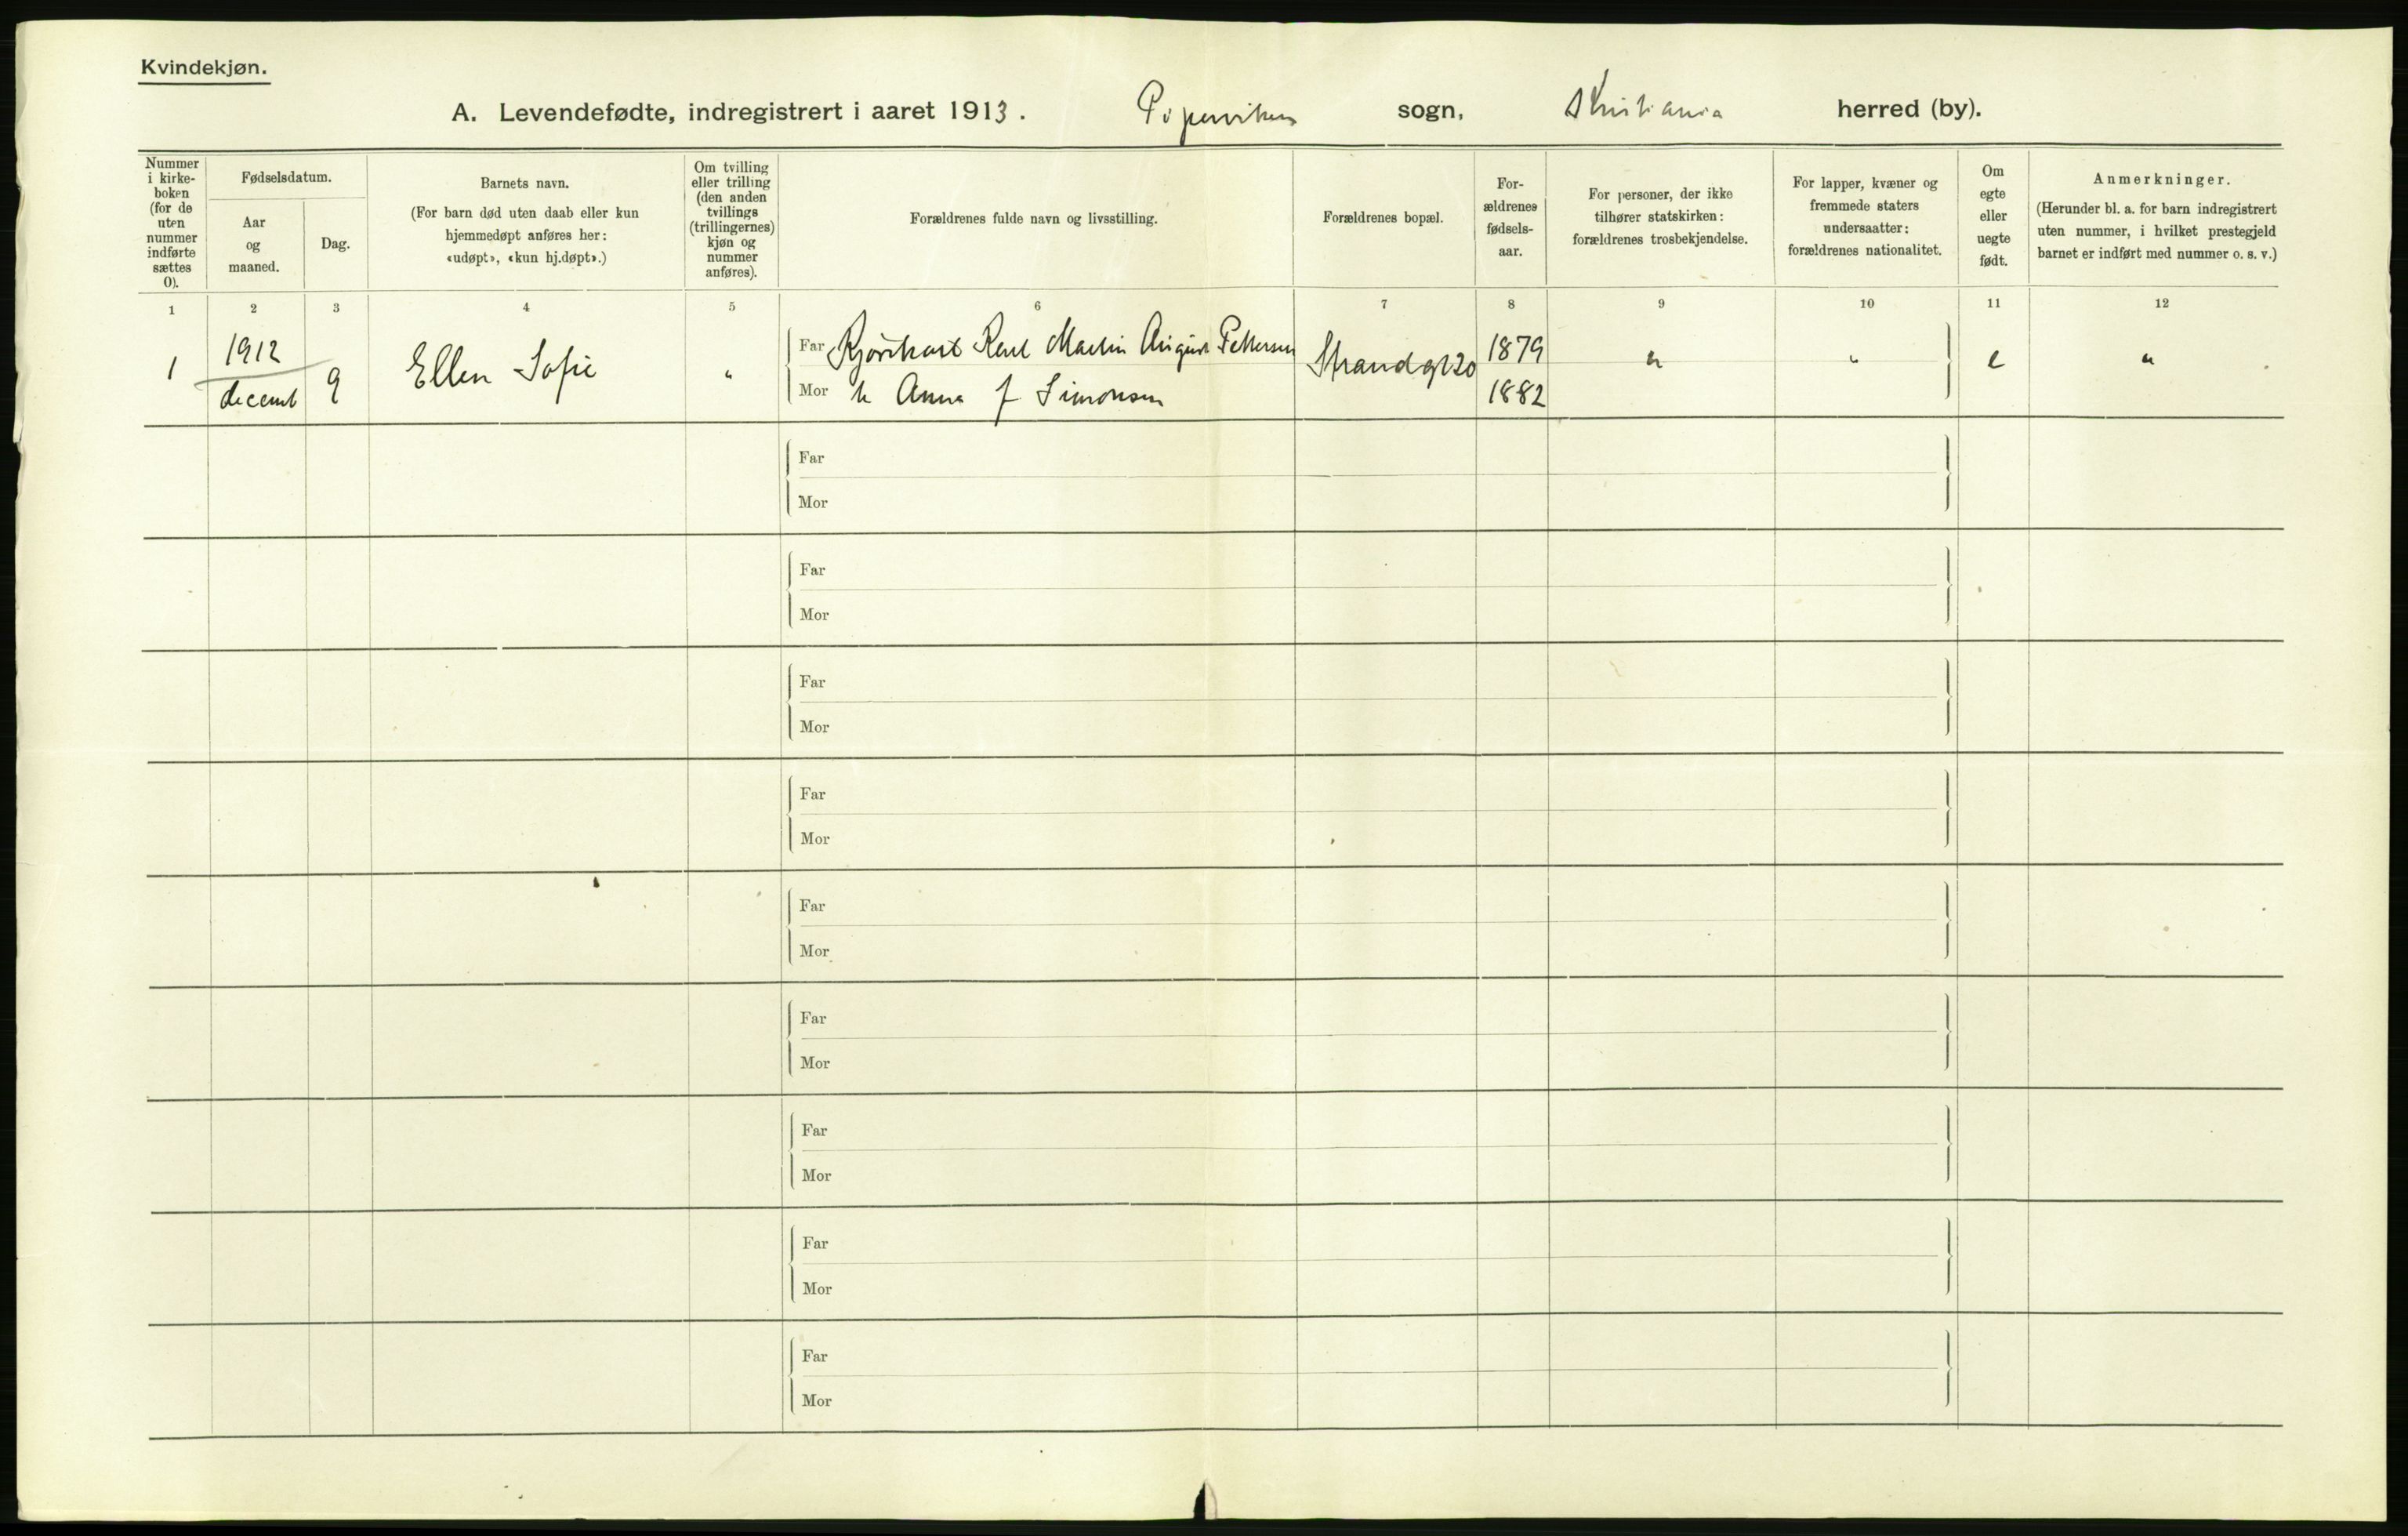 Kvindekjøn.
A. Levendefødte, indregistrert i aaret 1913. Piperviken sogn, Kristiania herred (by).
Nummer i kirke-boken (for de uten nummer indførte sættes 0).
Fødselsdatum.
Aar og maaned.
Dag.
Barnets navn.
(For barn død uten daab eller kun
hjemmedøpt anføres her:
«udøpt», «kun hj.døpt».)
Om tvilling
eller trilling
(den anden
tvillings
(trillingernes)
kjøn og
nummer
anføres).
Forældrenes fulde navn og livsstilling.
Forældrenes bopæl.
For-
ældrenes
fødsels-
aar.
For personer, der ikke
tilhører statskirken:
forældrenes trosbekjendelse.
For lapper, kvæner og
fremmede staters
undersaatter:
forældrenes nationalitet.
Om
egte
eller
uegte
født.
Anmerkninger.
(Herunder bl. a. for barn indregistrert
uten nummer, i hvilket prestegjeld
barnet er indført med nummer o. s. v.)
1 2 3 4 5 6 7 8 9 10 11 12
1 1912 decemb 9 Ellen Sofie "
Far Karl Martin August Pettersen
Mor h Anna f Simonsen
Strandgt 20 1879 1882 " " e "
Far
Mor
Far
Mor
Far
Mor
Far
Mor
Far
Mor
Far
Mor
Far
Mor
Far
Mor
Far
Mor